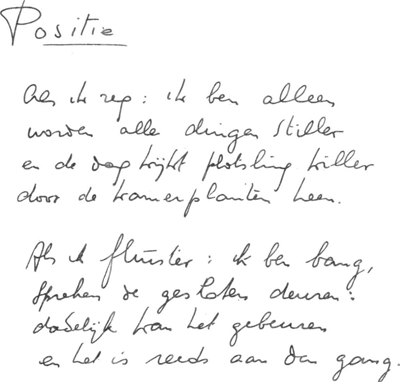 Positie
Als ik zeg: ik ben alleen
worden alle dingen stiller
en de dag krijgt plotsling killer
door de kamerplanten heen.
Als ik fluister: ik ben bang,
spreken de gesloten deuren:
dadelijk kan het gebeuren
en het is reeds aan den gang.